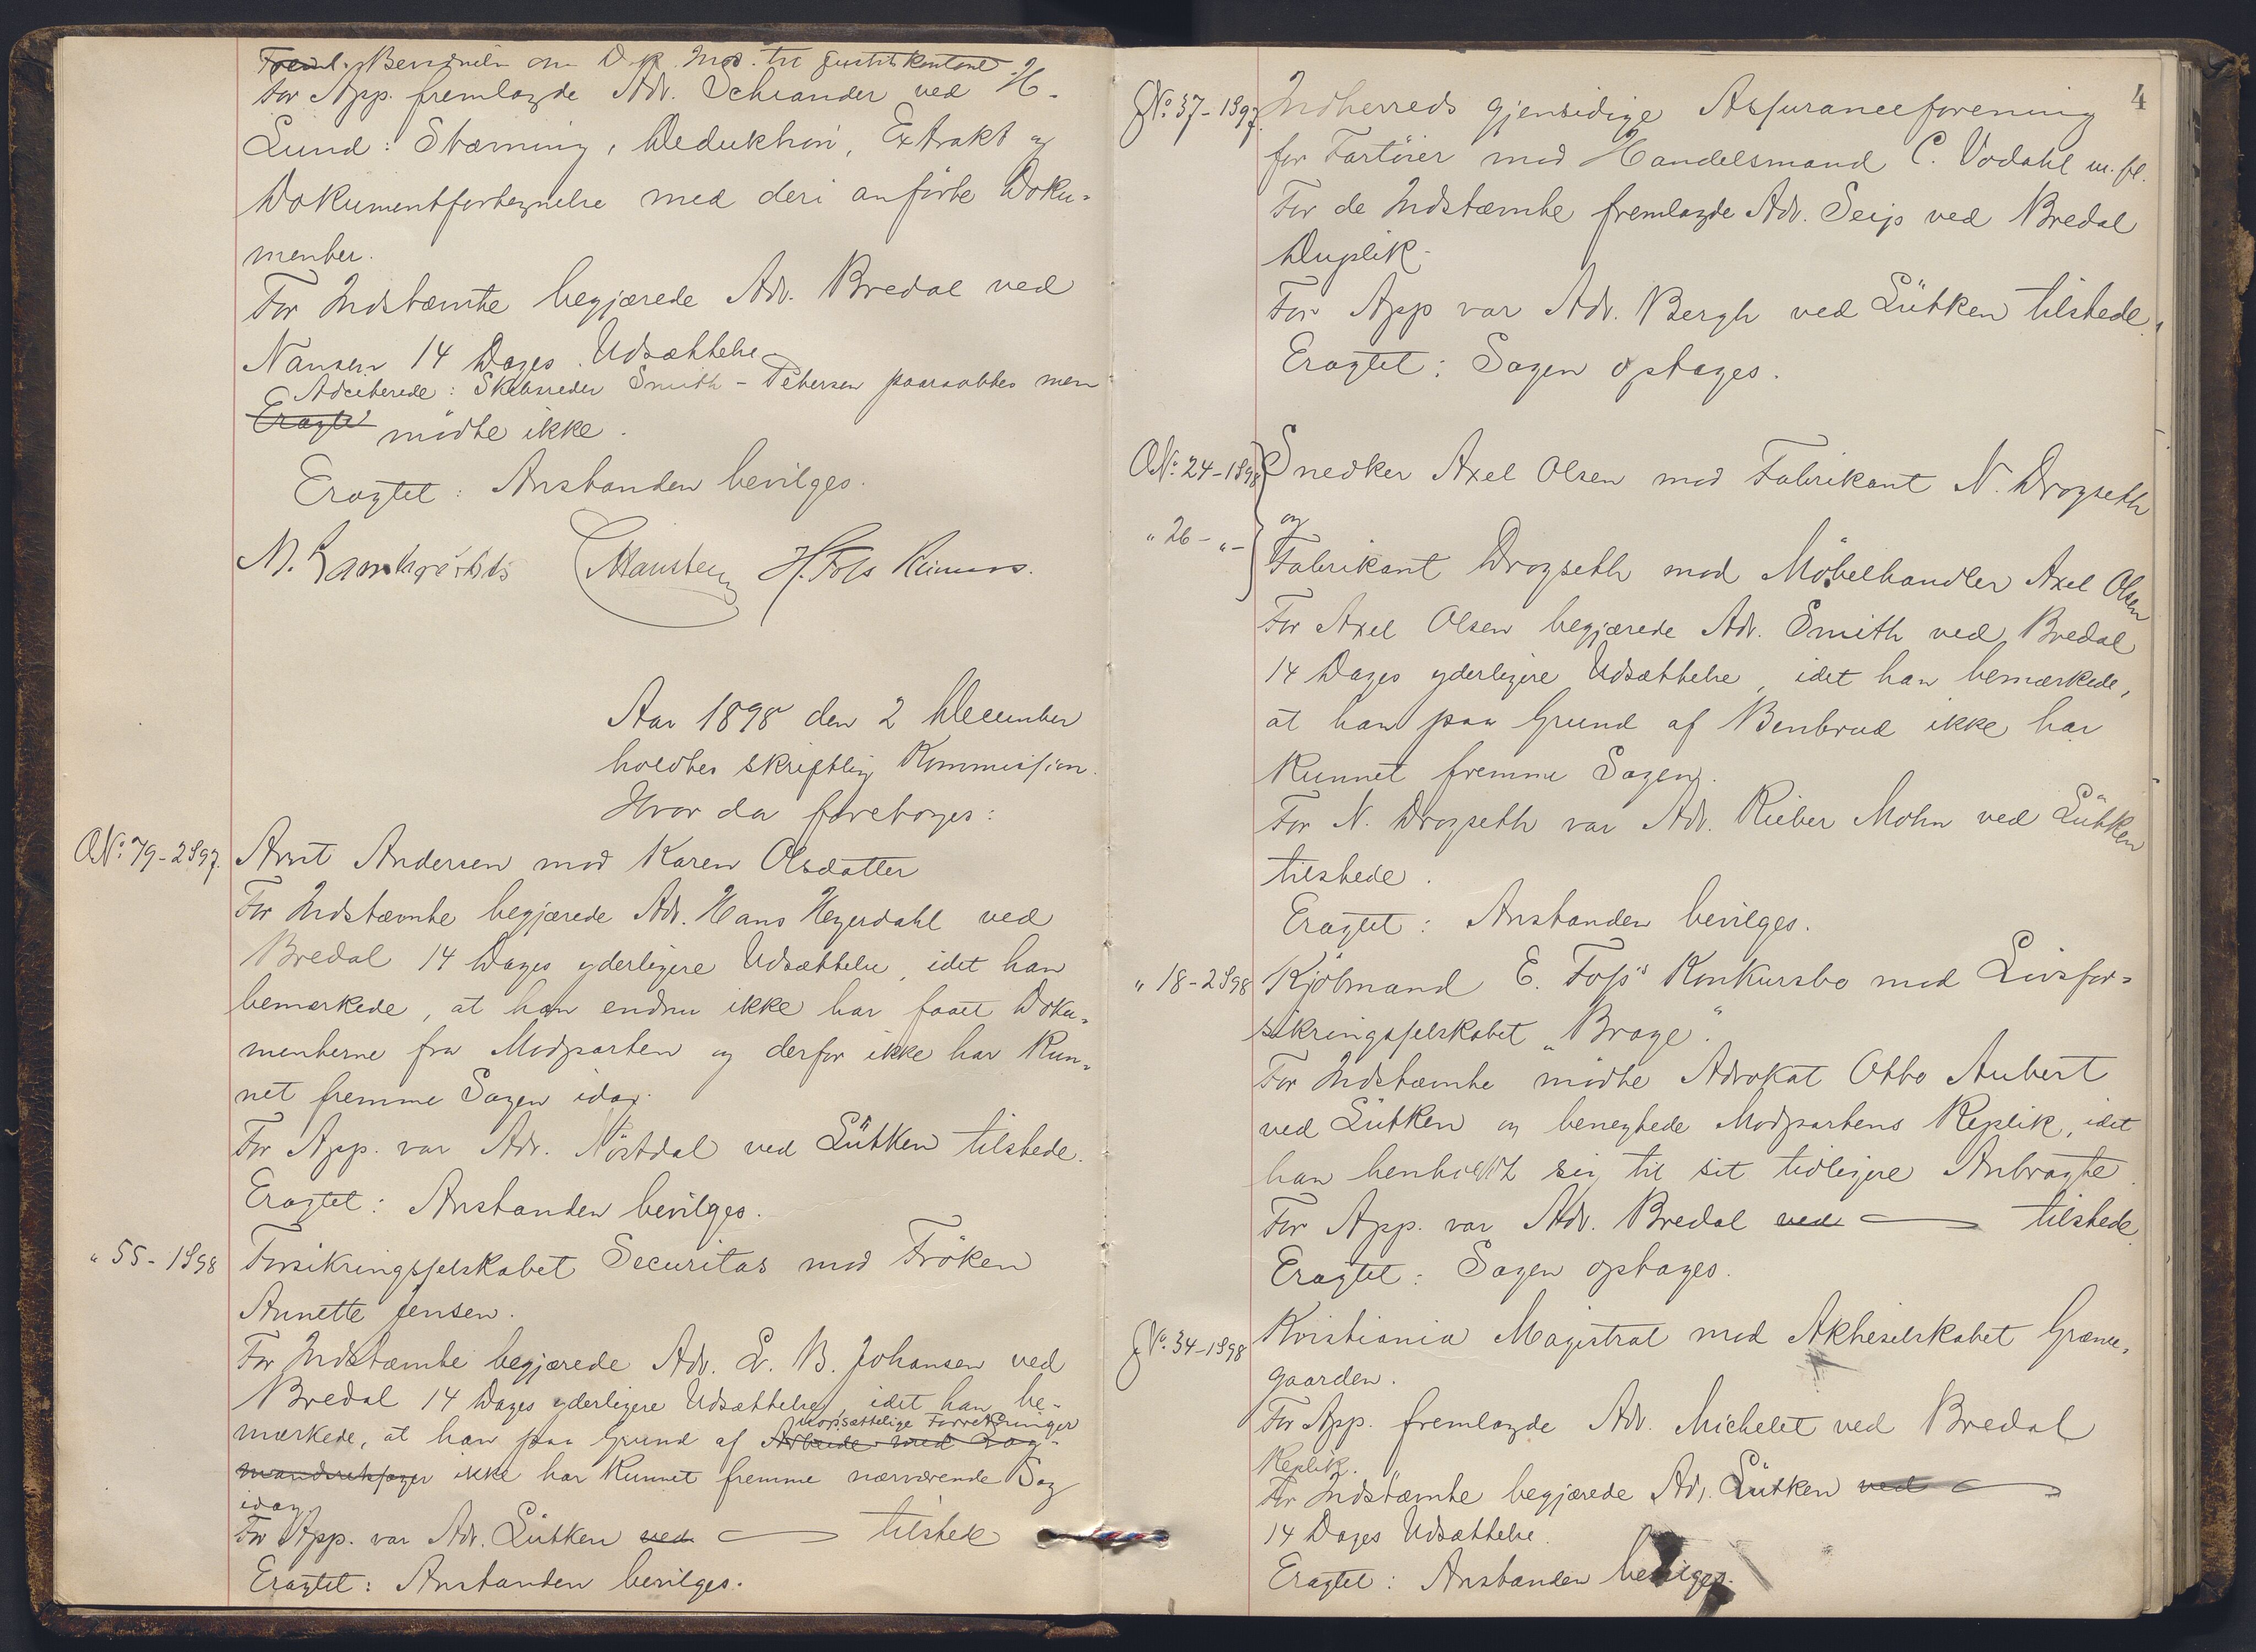 om
For App. fremlagde Adv. Schiander ved H.
Lund: Stævning, Deduktion, Extrakt og
Dokumentfortegnelse med deri anførte Doku-
menter.
For Indstævnte begjærede Adv. Bredal ved
Nansen 14 Dages Udsættelse
Adciterede: Skibsreder Smith-Petersen paaraabtes men
Eragtet mødte ikke.
Eragtet: Anstanden bevilges.
Aar 1898 den 2 December
holdtes skriftlig Kommission.
Hvor da foretoges:
O№ 79-2S97. Arnt Andersen mod Karen Olsdatter
For Indstævnte begjærede Adv. Hans Heyerdahl ved
Bredal 14 Dages yderligere Udsættelse, idet han
bemærkede, at han endnu ikke har faaet Doku-
menterne fra Modparten og derfor ikke har kun-
net fremme Sagen idag.
For App. var Adv. Nöstdal ved Lütken tilstede.
Eragtet: Anstanden bevilges.
" 55-1S98 Forsikringsselskabet Securitas mod Fröken
Annette Jensen.
For Indstævnte begjærede Adv. L. B. Johansen ved
Bredal 14 Dages yderligere Udsættelse, idet han be-
uopsættelige Forretninger
mærkede, at han paa Grund af Arbeide med Lag-
mandsretssager ikke har kunnet fremme nærværende Sag
idag.
For App. var Adv. Lütken ved tilstede
Eragtet: Anstanden bevilges.
4
J№ 37-1S97. Indherreds gjensidige Assuranceforening
for Fartöier mod Handelsmand C. Vodahl m.fl.
For de Indstævnte fremlagde Adv. Seip ved Bredal
Duplik.
For App var Adv. Bergh ved Lütken tilstede.
Eragtet: Sagen optages.
O№ 24-1S98 Snedker Axel Olsen mod Fabrikant N. Drogseth
" 26-"- og
Fabrikant Drogseth mod Möbelhandler Axel Olsen
For Axel Olsen begjærede Adv. Smith ved Bredal
14 Dages yderligere Udsættelse, idet han bemærkede,
at han paa Grund af Benbrud ikke har
kunnet fremme Sagen.
For N. Drogseth var Adv. Rieber Mohn ved Lütken
tilstede.
Eragtet: Anstanden bevilges.
" 18-2S98 Kjöbmand E. Foss's Konkursbo mod Livsfor-
sikringsselskabet "Brage".
For Indstævnte mødte Advokat Otto Aubert
ved Lütken og benegtede Modpartens Replik, idet
han henholdt sig til sit tidligere Anbragte.
For App. var Adv. Bredal ved tilstede
Eragtet: Sagen optages.
J№ 34-1S98 Kristiania Magistrat mod Aktieselskabet Grænse-
gaarden.
For App. fremlagde Adv. Michelet ved Bredal
Replik.
For Indstævnte begjærede Adv. Lütken ved
14 Dages Udsættelse.
Eragtet: Anstanden bevilges.